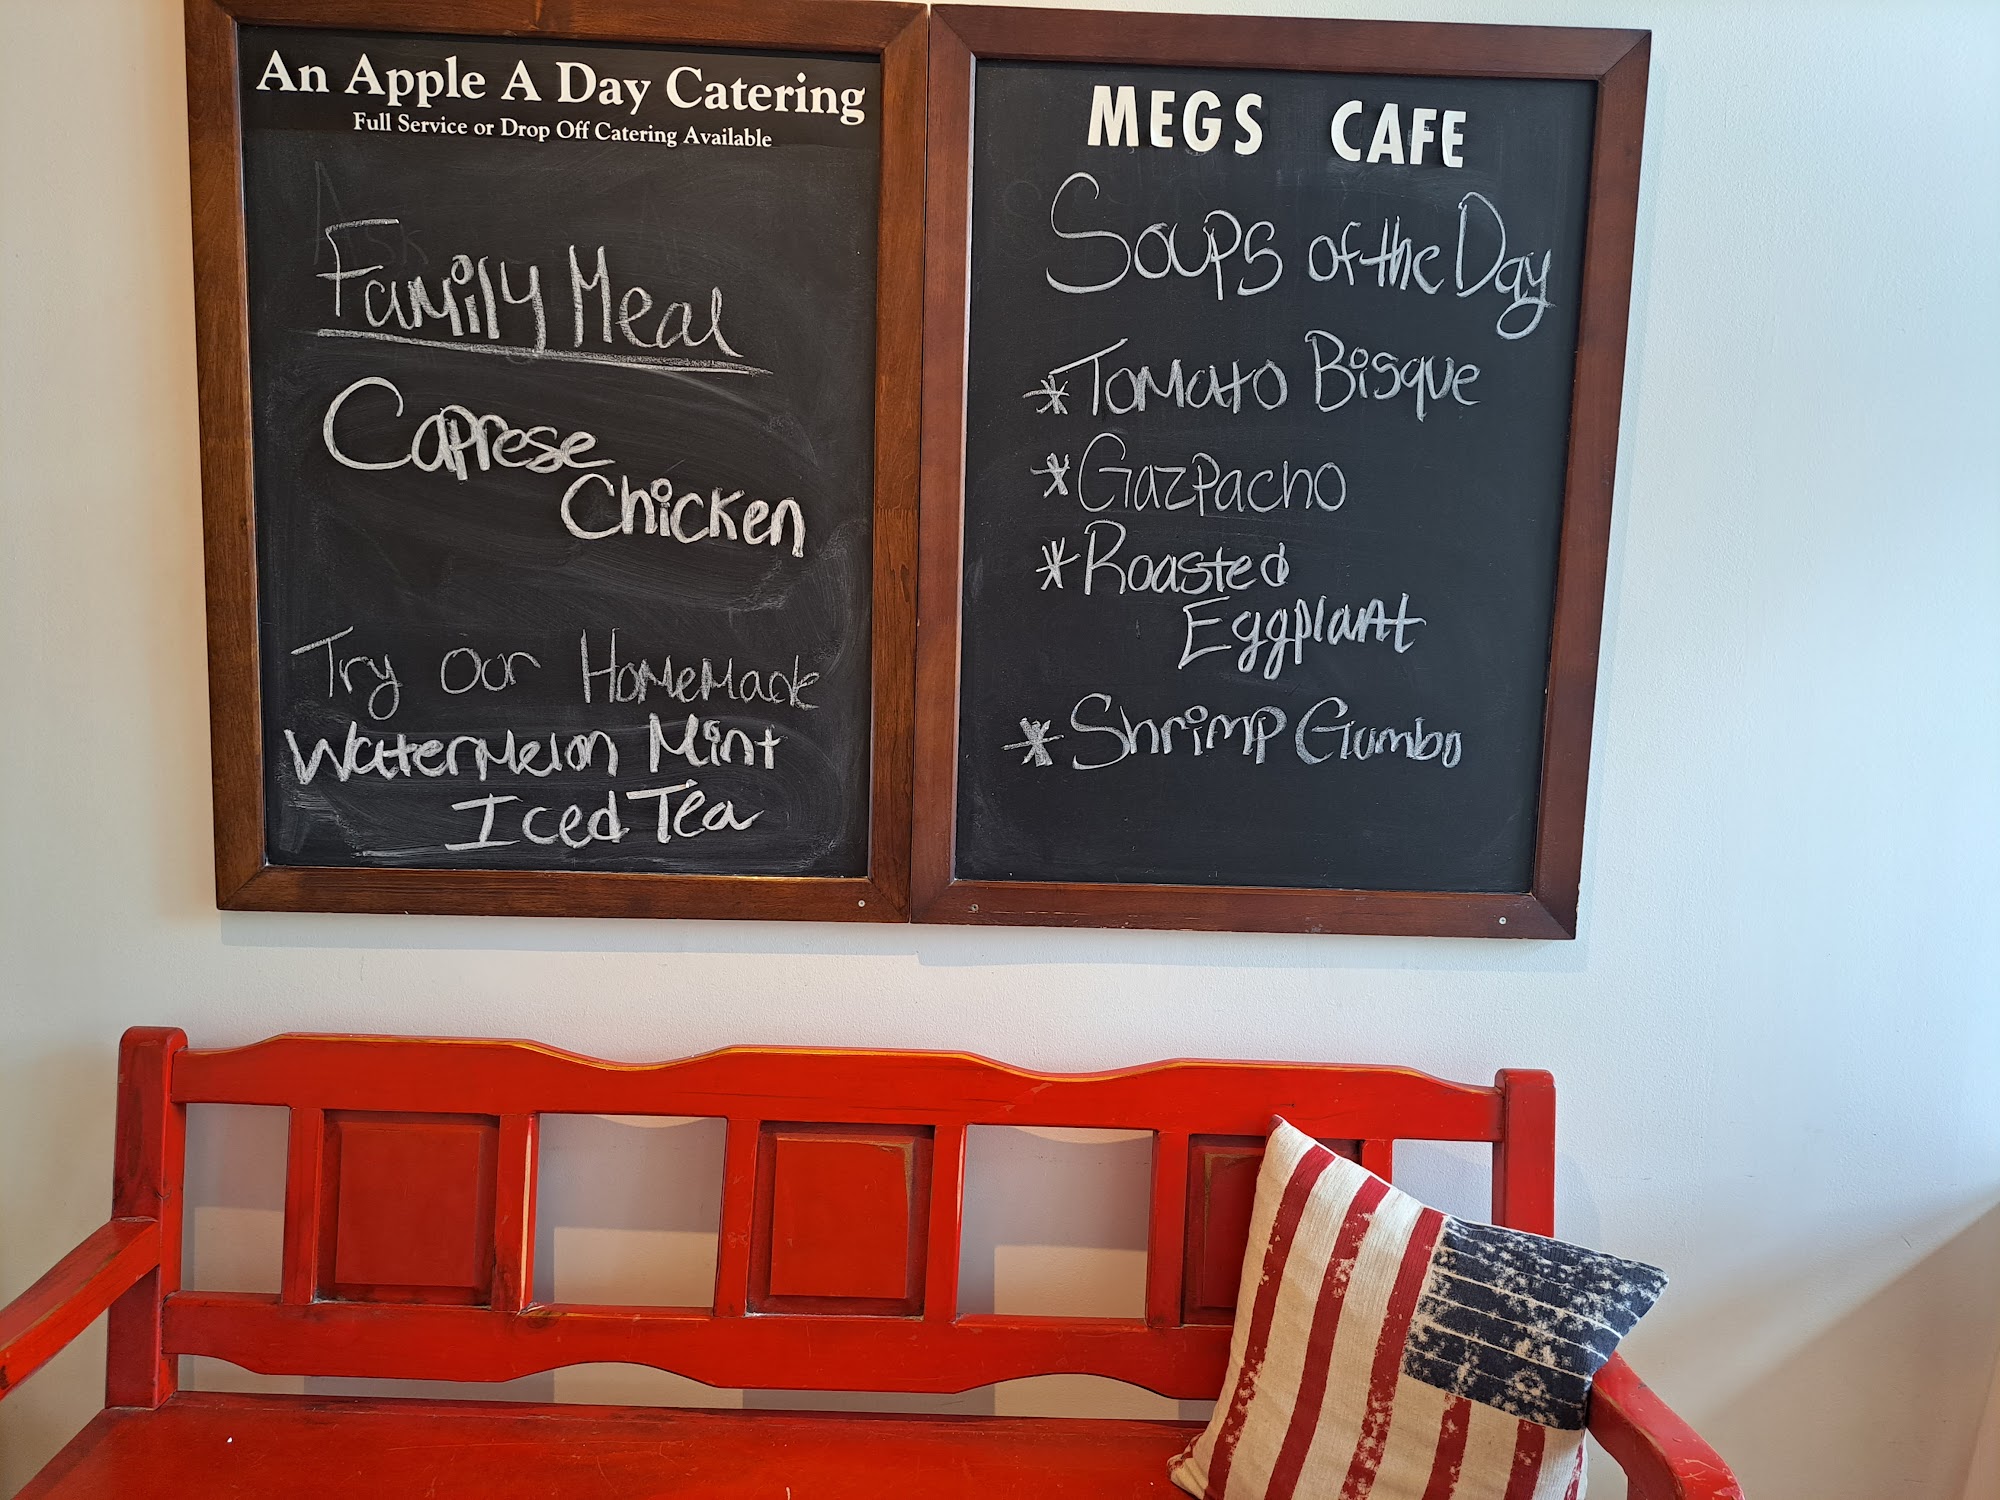 An Apple A Day Catering
Full Service or Drop Off Catering Available
Ask
Family Meal
Caprese
Chicken
Try our Homemade
Watermelon Mint
Iced Tea
MEGS CAFE
Soups of the Day
*Tomato Bisque
*Gazpacho
*Roasted
Eggplant
*Shrimp Gumbo